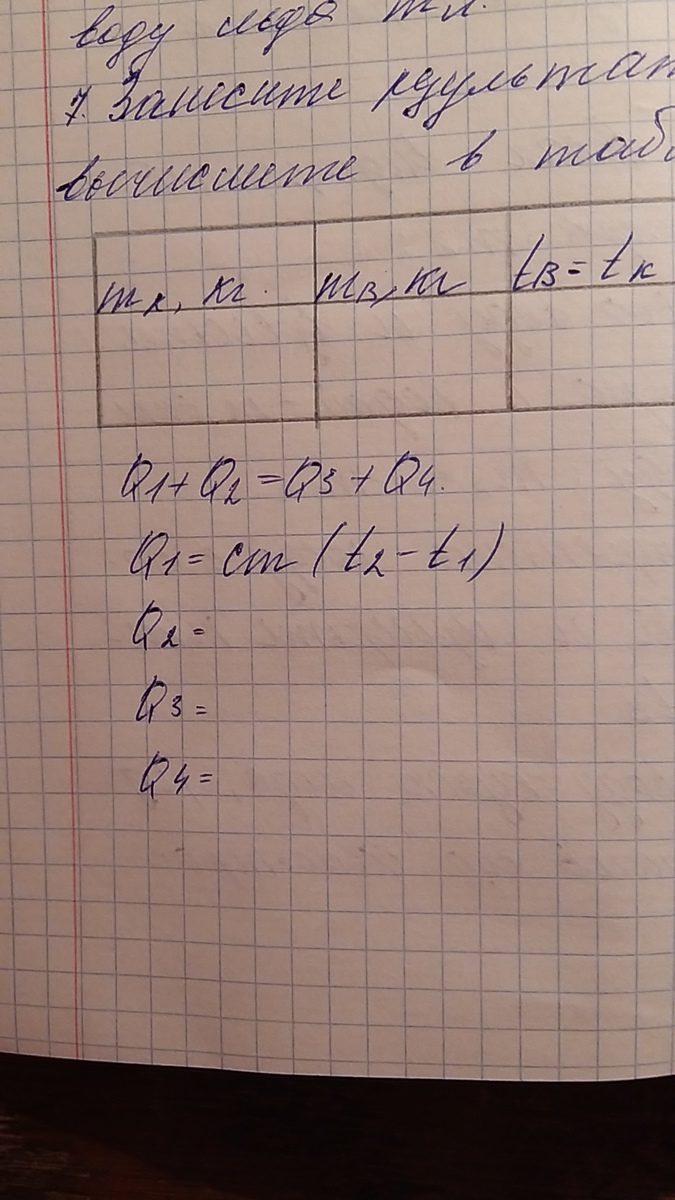 воду льда mл.
7. Запишите
вычислите в таб
mк, кг. mв, кг tв = tк
Q1 + Q2 = Q3 + Q4.
Q1 = cm (t2 - t1)
Q2 =
Q3 =
Q4 =